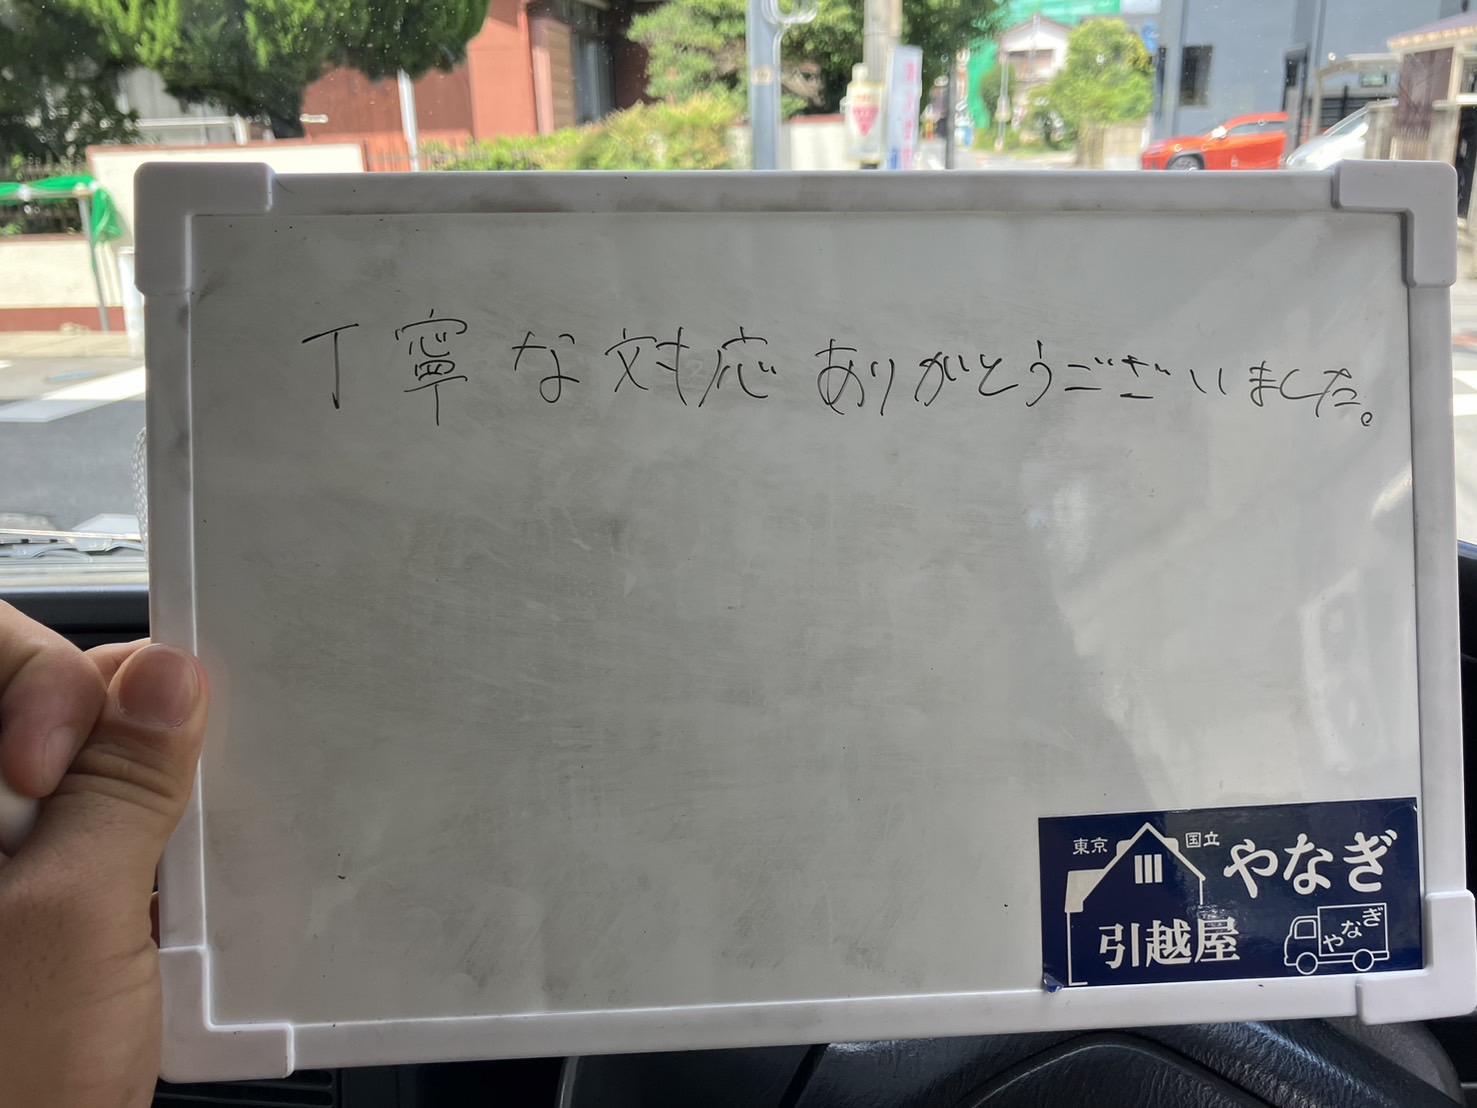 丁寧な対応ありがとうございました。
東京 国立 やなぎ
引越屋
やなぎ